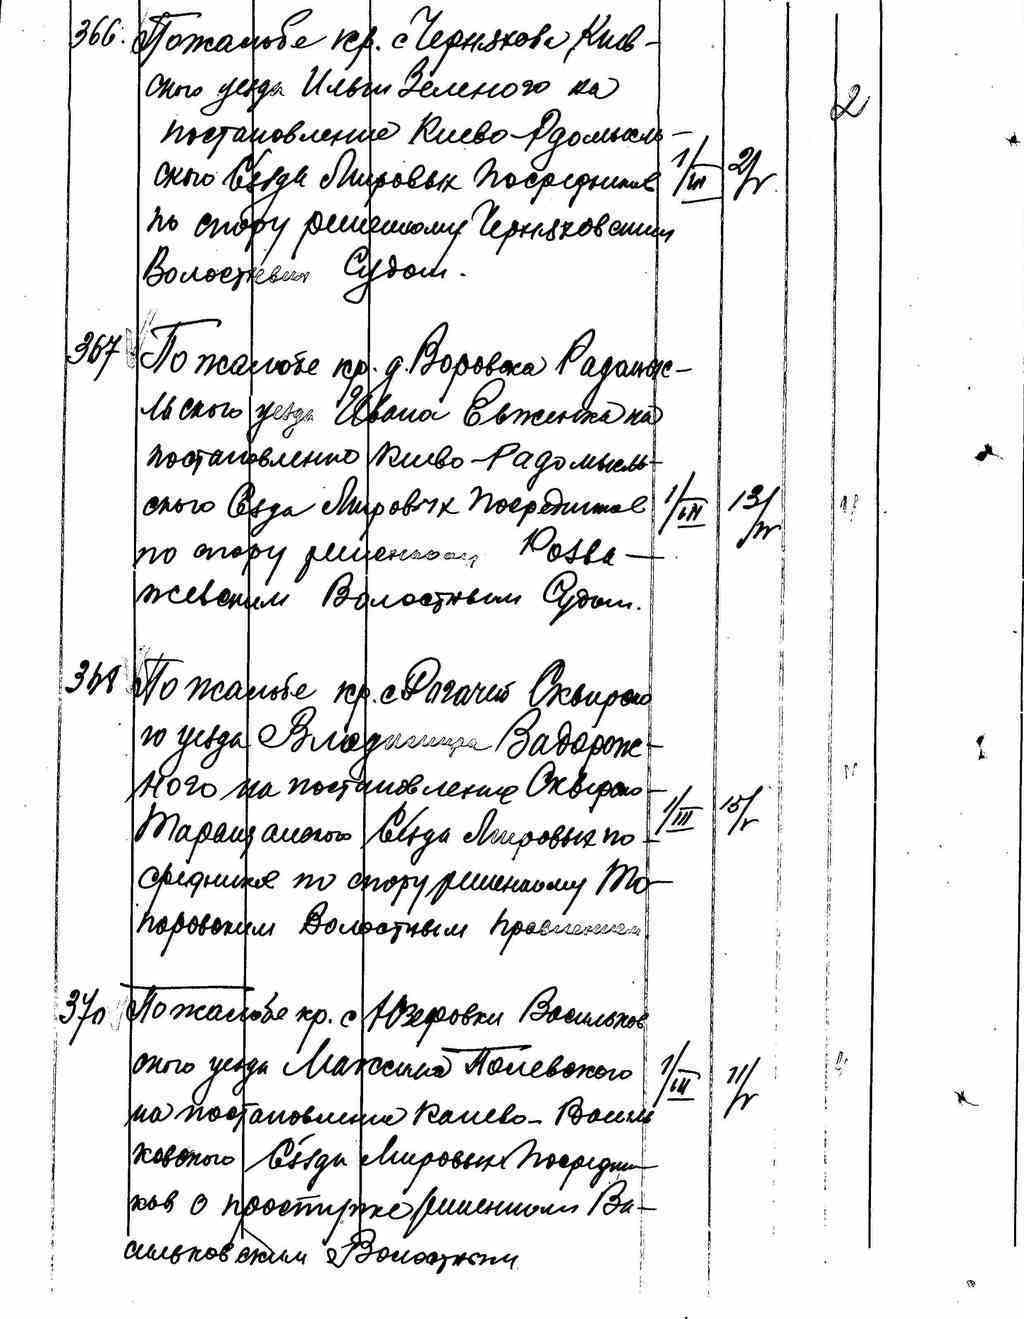 366. По жалобе кр. с Чернихова Киев-
ского уезда Ильи Зеленого на
постановление Киево-Рдомысль-
ского Съезда Мировых Посредников 1/III 21/V 2
по спору решенному Черняховским
Волостным Судом.
367 По жалобе кр. д. Воровска Радомыс-
льского уезда Ивана Евженка на
постановление Киево-Радомысль-
ского Съезда Мировых Посредников 1/III 13/IV
по спору решенному Розва-
жевским Волостным Судом.
368 По жалобе кр. с Рогачей Сквирско
го уезда Владимира Задорож-
ного на постановление Сквирско-
Таращанского Съезда Мировых по- 1/III 15/V
средников по спору решенному То-
поровским Волостным Правлением
370 По жалобе кр. с Юзефовки Васильков
ского уезда Максима Полевского 1/III 11/V
на постановление Канево-Василь
ковского Съезда Мировых Посредни
ков о решенном Ва-
сильковским Волостным